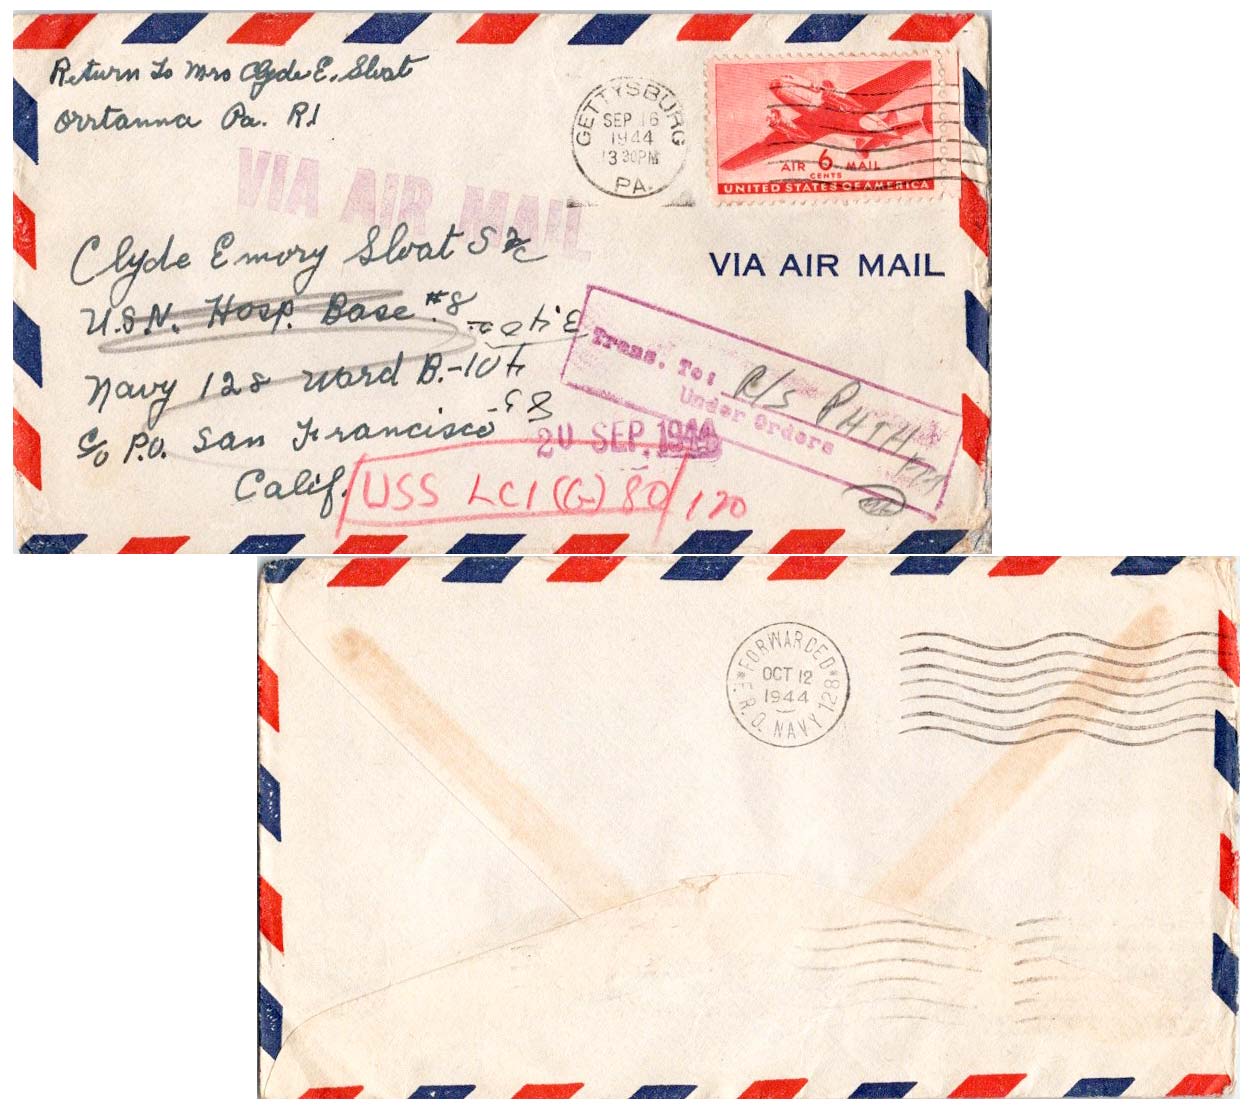 Return To Mrs Clyde E. Sloat
Orrtanna Pa. R1
GETTYSBURG
SEP 16
1944
3 30PM
PA.
AIR 6 MAIL
CENTS
UNITED STATES OF AMERICA
VIA AIR MAIL
VIA AIR MAIL
Clyde Emory Sloat S 2/c
U.S.N. Hosp. Base #8
Navy 128 Ward B.-10
c/o P.O. San Francisco
Calif.
Trans. To: R/S
Under Orders
20 SEP. 1944
USS LCI (G) 80 / 120
*FORWARDED*
OCT 12
1944
F.R.O. NAVY 128